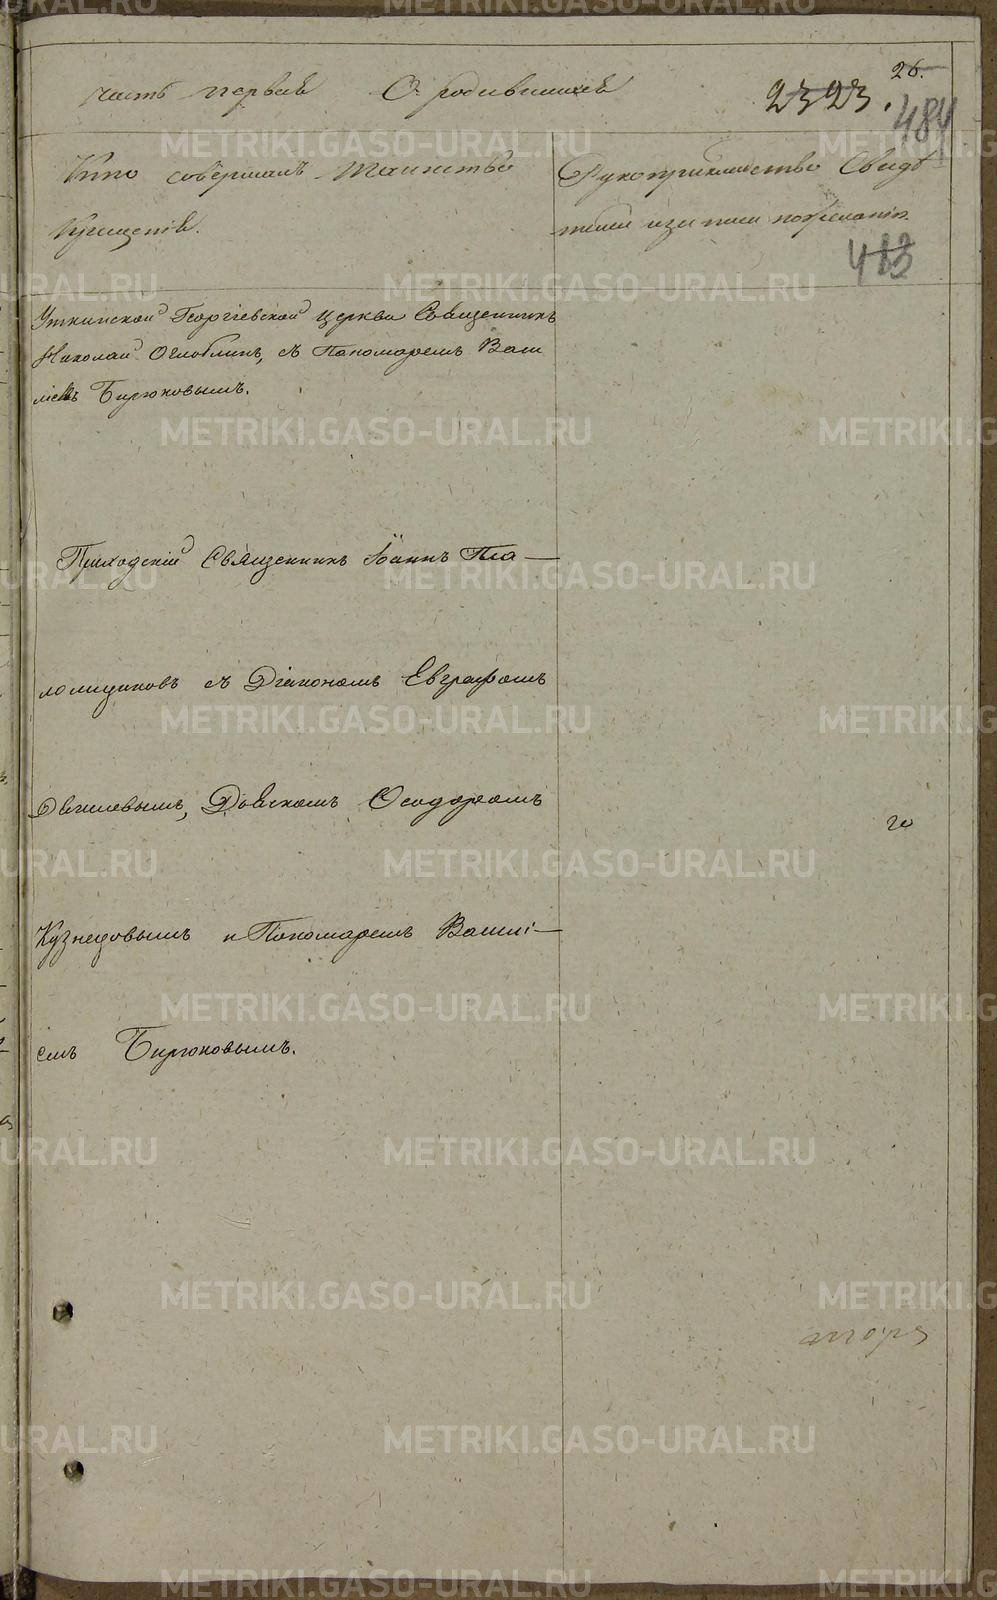 часть первая О родившихся
26.
23 23.
484
Кто совершалъ таинство
крещенія.
Рукоприкладство Свидѣ-
телей записи по желанію.
483
Уткинской Георгіевской церкви Священникъ
Николай Оглоблинъ, съ Пономаремъ Васи
ліемъ Бирюковымъ.
Приходскій Священникъ Іоаннъ Пла-
ломщиковъ съ Діакономъ Евграфомъ
Дьячкомъ Ѳеодоромъ
го
Кузнецовымъ и Пономаремъ Василі-
емъ Бирюковымъ.
METRIKI.GASO-URAL.RU